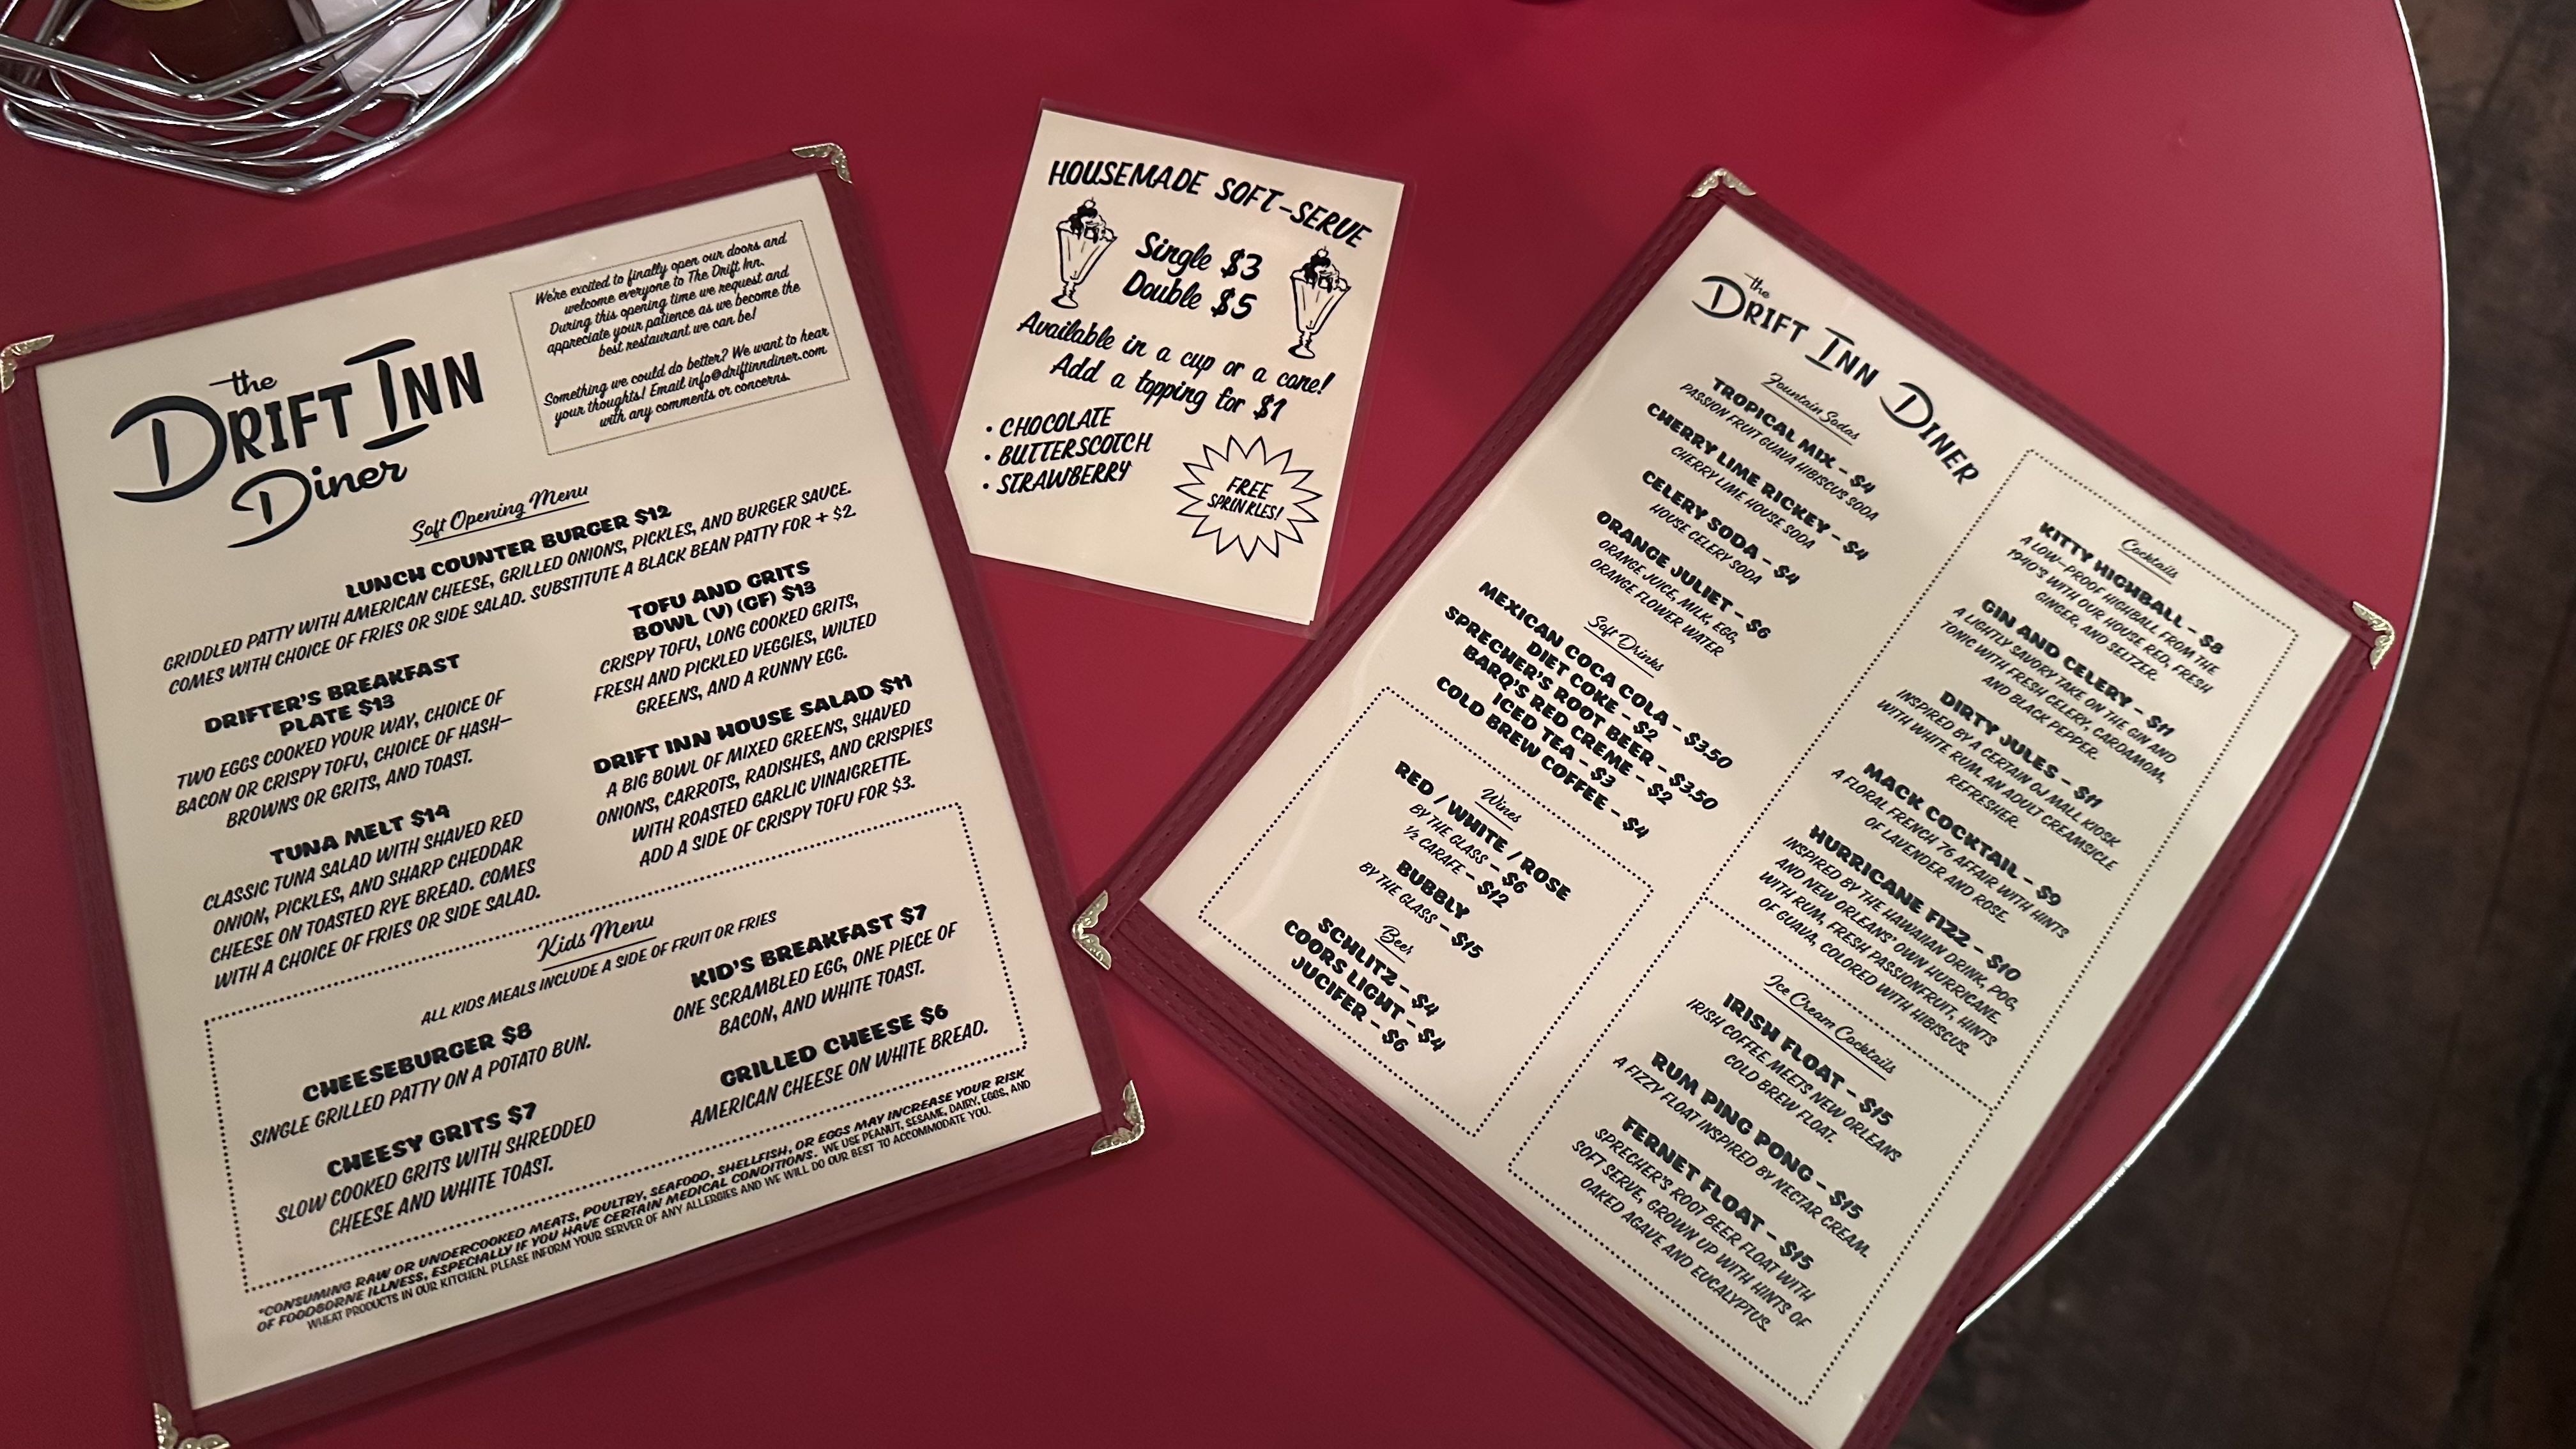 the
DRIFT INN
Diner
We're excited to finally open our doors and
welcome everyone to The Drift Inn.
During this opening time we request and
appreciate your patience as we become the
best restaurant we can be!
Something we could do better? We want to hear
your thoughts! Email info@driftinndiner.com
with any comments or concerns.
Soft Opening Menu
LUNCH COUNTER BURGER $12
GRIDDLED PATTY WITH AMERICAN CHEESE, GRILLED ONIONS, PICKLES, AND BURGER SAUCE.
COMES WITH CHOICE OF FRIES OR SIDE SALAD. SUBSTITUTE A BLACK BEAN PATTY FOR + $2.
DRIFTER'S BREAKFAST
PLATE $13
TWO EGGS COOKED YOUR WAY, CHOICE OF
BACON OR CRISPY TOFU, CHOICE OF HASH-
BROWNS OR GRITS, AND TOAST.
TUNA MELT $14
CLASSIC TUNA SALAD WITH SHAVED RED
ONION, PICKLES, AND SHARP CHEDDAR
CHEESE ON TOASTED RYE BREAD. COMES
WITH A CHOICE OF FRIES OR SIDE SALAD.
TOFU AND GRITS
BOWL (V) (GF) $13
CRISPY TOFU, LONG COOKED GRITS,
FRESH AND PICKLED VEGGIES, WILTED
GREENS, AND A RUNNY EGG.
DRIFT INN HOUSE SALAD $11
A BIG BOWL OF MIXED GREENS, SHAVED
ONIONS, CARROTS, RADISHES, AND CRISPIES
WITH ROASTED GARLIC VINAIGRETTE.
ADD A SIDE OF CRISPY TOFU FOR $3.
Kids Menu
ALL KIDS MEALS INCLUDE A SIDE OF FRUIT OR FRIES
CHEESEBURGER $8
SINGLE GRILLED PATTY ON A POTATO BUN.
CHEESY GRITS $7
SLOW COOKED GRITS WITH SHREDDED
CHEESE AND WHITE TOAST.
KID'S BREAKFAST $7
ONE SCRAMBLED EGG, ONE PIECE OF
BACON, AND WHITE TOAST.
GRILLED CHEESE $6
AMERICAN CHEESE ON WHITE BREAD.
*CONSUMING RAW OR UNDERCOOKED MEATS, POULTRY, SEAFOOD, SHELLFISH, OR EGGS MAY INCREASE YOUR RISK
OF FOODBORNE ILLNESS, ESPECIALLY IF YOU HAVE CERTAIN MEDICAL CONDITIONS. WE USE PEANUT, SESAME, DAIRY, EGGS, AND
WHEAT PRODUCTS IN OUR KITCHEN. PLEASE INFORM YOUR SERVER OF ANY ALLERGIES AND WE WILL DO OUR BEST TO ACCOMMODATE YOU.
HOUSEMADE SOFT-SERVE
Single $3
Double $5
Available in a cup or a cone!
Add a topping for $1
• CHOCOLATE
• BUTTERSCOTCH
• STRAWBERRY
FREE
SPRINKLES!
the
DRIFT INN DINER
Fountain Sodas
TROPICAL MIX - $4
PASSION FRUIT GUAVA HIBISCUS SODA
CHERRY LIME RICKEY - $4
CHERRY LIME HOUSE SODA
CELERY SODA - $4
HOUSE CELERY SODA
ORANGE JULIET - $6
ORANGE JUICE, MILK, EGG,
ORANGE FLOWER WATER
Soft Drinks
MEXICAN COCA COLA - $3.50
DIET COKE - $2
SPRECHER'S ROOT BEER - $3.50
BARQ'S RED CREME - $2
ICED TEA - $3
COLD BREW COFFEE - $4
Wines
RED / WHITE / ROSE
BY THE GLASS - $6
1/2 CARAFE - $12
BUBBLY
BY THE GLASS - $15
Beer
SCHLITZ - $4
COORS LIGHT - $4
JUCIFER - $6
Cocktails
KITTY HIGHBALL - $8
A LOW-PROOF HIGHBALL FROM THE
1940'S WITH OUR HOUSE RED, FRESH
GINGER, AND SELTZER.
GIN AND CELERY - $11
A LIGHTLY SAVORY TAKE ON THE GIN AND
TONIC WITH FRESH CELERY, CARDAMOM,
AND BLACK PEPPER.
DIRTY JULES - $11
INSPIRED BY A CERTAIN OJ MALL KIOSK
WITH WHITE RUM. AN ADULT CREAMSICLE
REFRESHER.
MACK COCKTAIL - $9
A FLORAL FRENCH 76 AFFAIR WITH HINTS
OF LAVENDER AND ROSE.
HURRICANE FIZZ - $10
INSPIRED BY THE HAWAIIAN DRINK, POG,
AND NEW ORLEANS' OWN HURRICANE.
WITH RUM, FRESH PASSIONFRUIT, HINTS
OF GUAVA, COLORED WITH HIBISCUS.
Ice Cream Cocktails
IRISH FLOAT - $15
IRISH COFFEE MEETS NEW ORLEANS
COLD BREW FLOAT.
RUM PING PONG - $15
A FIZZY FLOAT INSPIRED BY NECTAR CREAM.
FERNET FLOAT - $15
SPRECHER'S ROOT BEER FLOAT WITH
SOFT SERVE, GROWN UP WITH HINTS OF
OAKED AGAVE AND EUCALYPTUS.